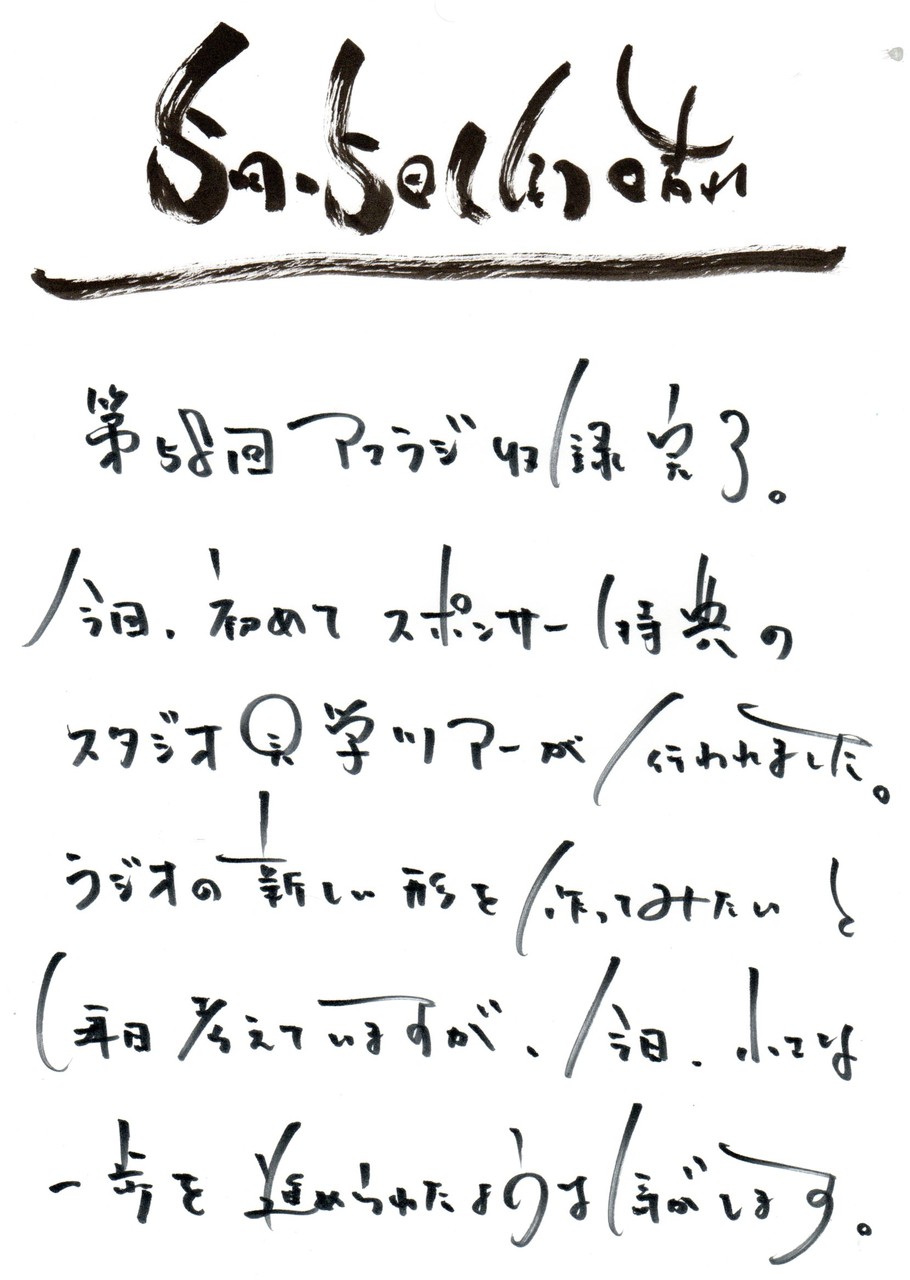 第58回 アコラジ収録完了。
今日、初めてスポンサー特典の
スタジオ見学ツアーが行われました。
ラジオの新しい形を作ってみたいと
毎日考えていますが、今日、小さな
一歩を進められたような気がします。